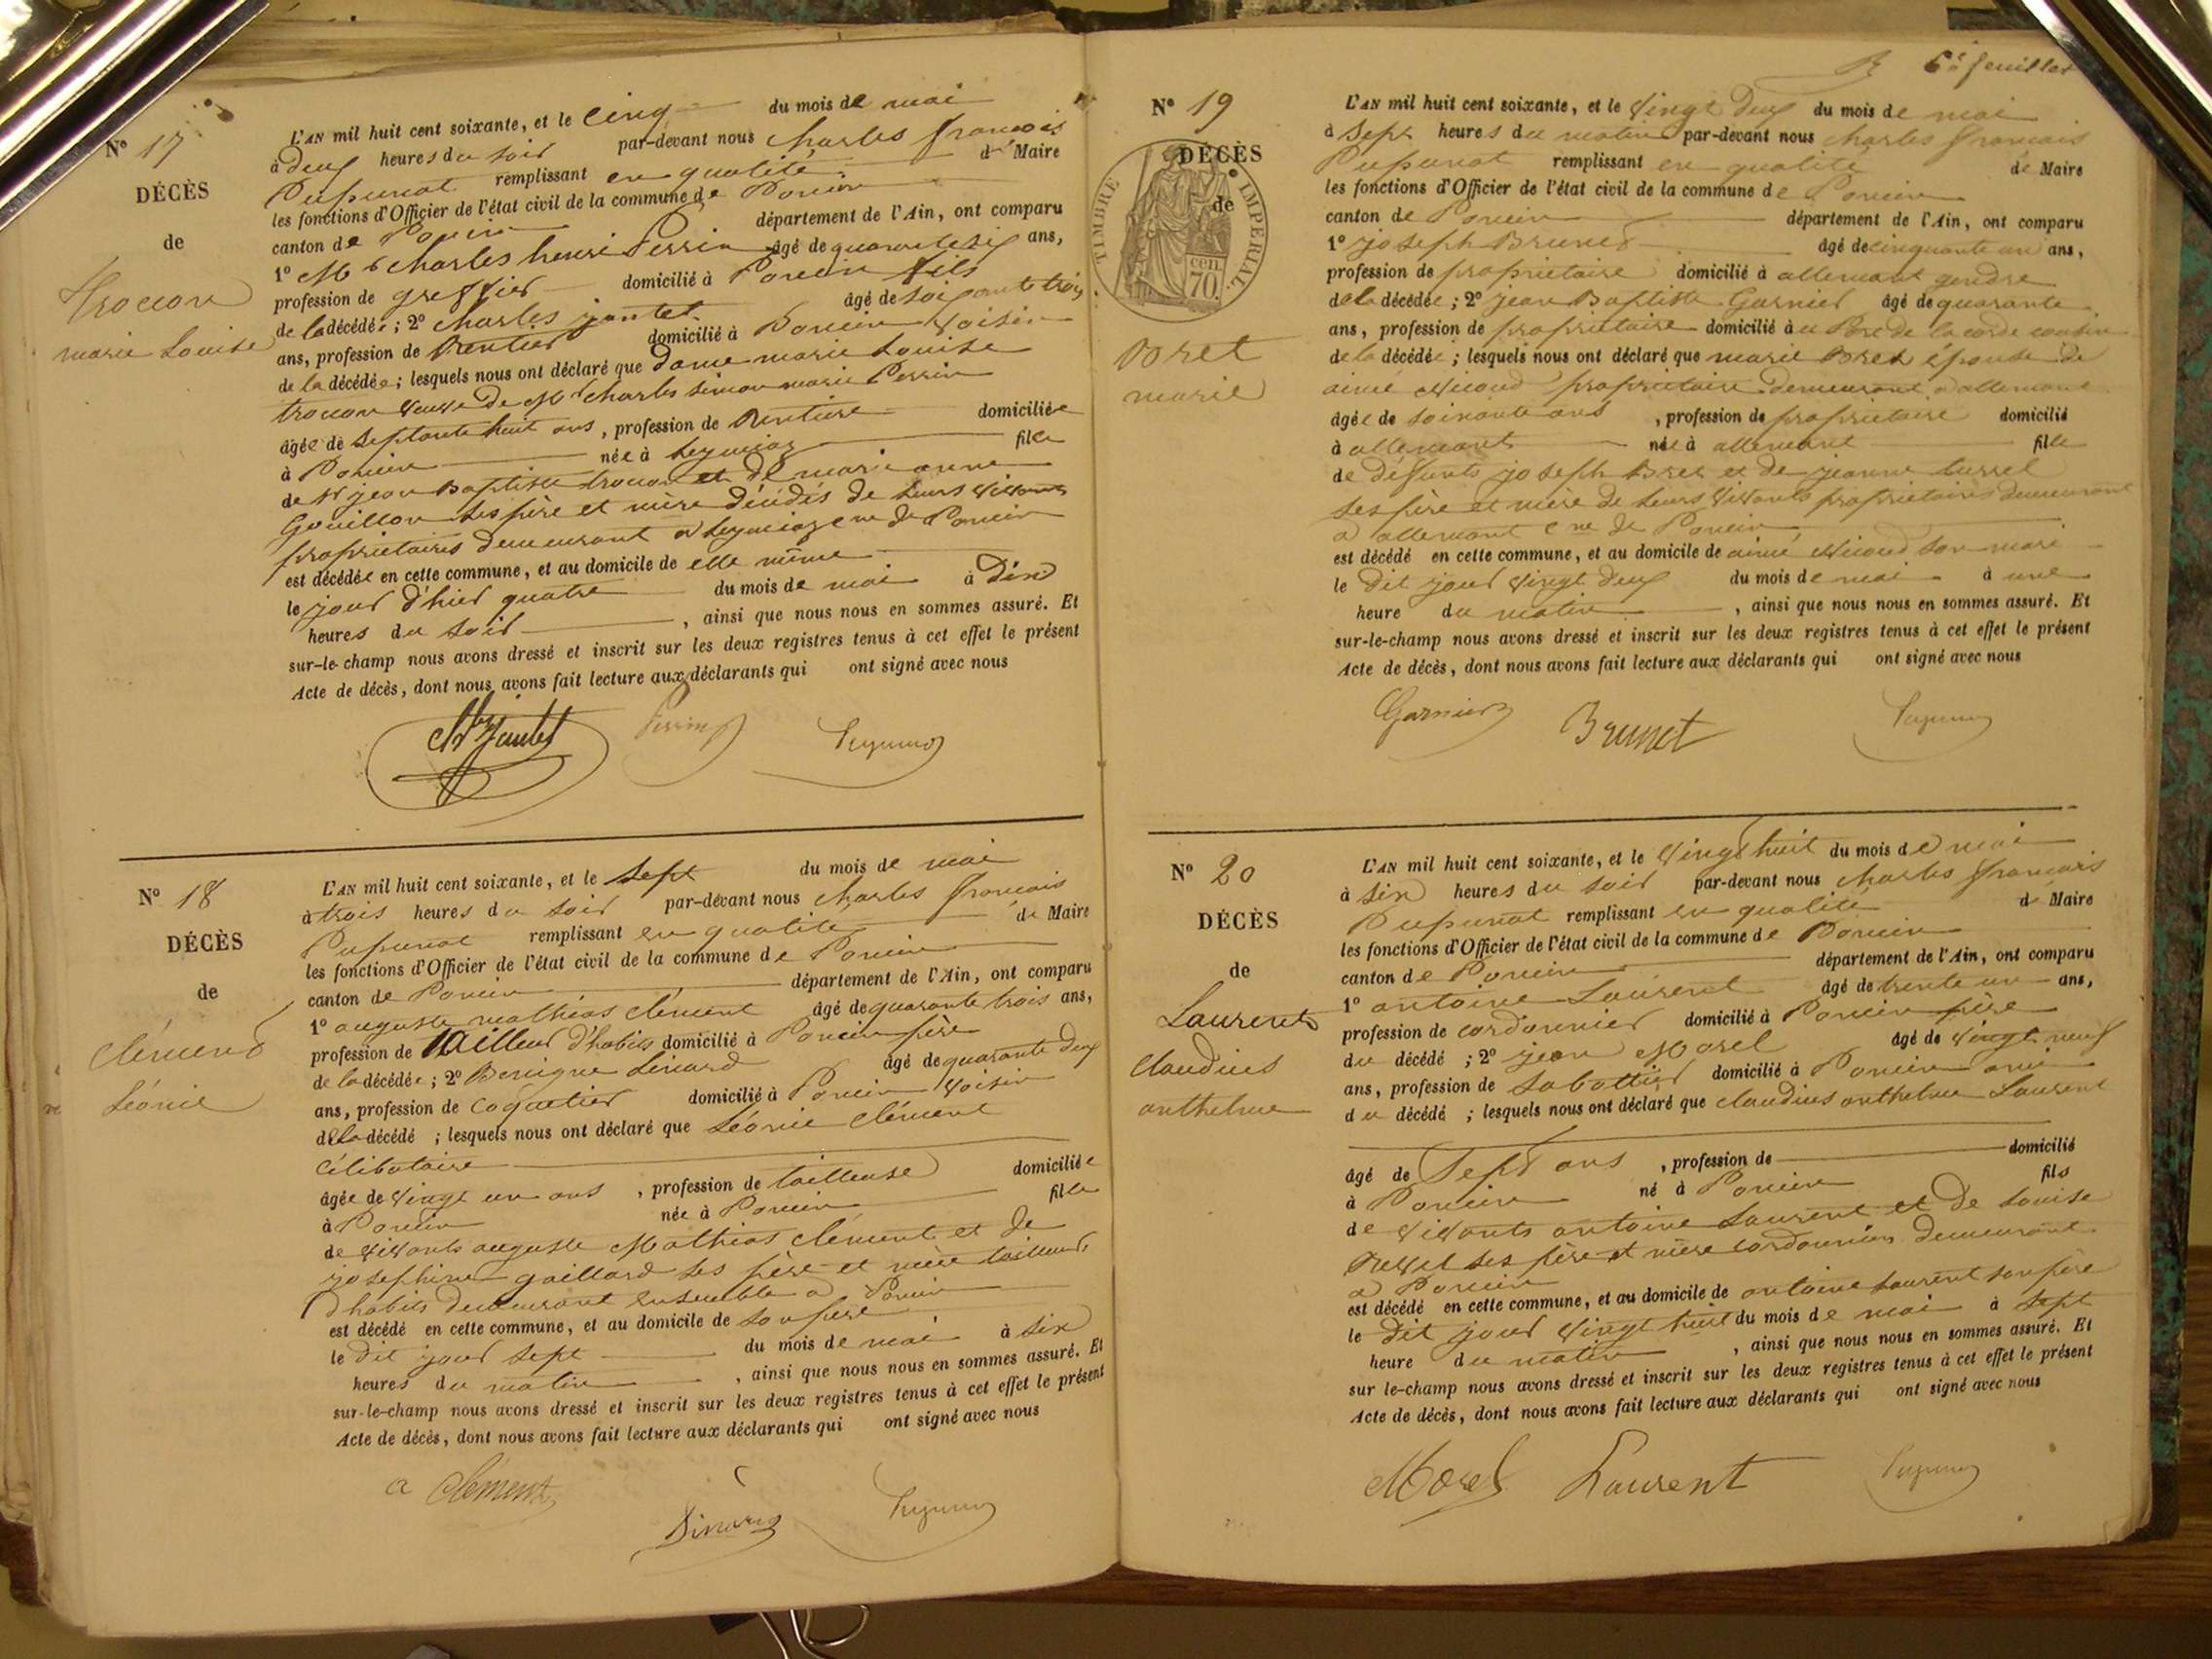 N° 17
DÉCÈS
de
Trocon
marie Louise
L'AN mil huit cent soixante, et le cinq du mois de mai
à deux heures du soir par-devant nous charles françois
Pupunat remplissant en qualité de Maire
les fonctions d'Officier de l'état civil de la commune de Poncin
canton de Poncin département de l'Ain, ont comparu
1° Mr charles henri Perrin âgé de quarante six ans,
profession de greffier domicilié à Poncin fils
de la décédée ; 2° charles jantet âgé de soixante trois
ans, profession de Rentier domicilié à Poncin Voisin
de la décédée ; lesquels nous ont déclaré que dame marie Louise
trocon Veuve de Mr charles simon marie Perrin
âgée de septante huit ans , profession de Rentière domiciliée
à Poncin née à Leymiaz fille
de Sr jean Baptiste trocon et de marie anne
Gouillon ses père et mère décédés de leurs Vivants
propriétaires demeurant a Leymiaz cne de Poncin
est décédée en cette commune, et au domicile de elle même
le jour d'hier quatre du mois de mai à dix
heures du soir , ainsi que nous nous en sommes assuré. Et
sur-le-champ nous avons dressé et inscrit sur les deux registres tenus à cet effet le présent
Acte de décès, dont nous avons fait lecture aux déclarants qui ont signé avec nous
Jantet Perrin Pupunat
N° 18
DÉCÈS
de
clément
Léonie
L'AN mil huit cent soixante, et le sept du mois de mai
à trois heures du soir par-devant nous charles françois
Pupunat remplissant en qualité de Maire
les fonctions d'Officier de l'état civil de la commune de Poncin
canton de Poncin département de l'Ain, ont comparu
1° auguste mathias clément âgé de quarante trois ans,
profession de tailleur d'habits domicilié à Poncin père
de la décédée ; 2° Benigne Linard âgé de quarante deux
ans, profession de coquetier domicilié à Poncin Voisin
de la décédé ; lesquels nous ont déclaré que Léonie clément
célibataire
âgée de Vingt un ans , profession de tailleuse domiciliée
à Poncin née à Poncin fille
de Vivants auguste Mathias clément et de
josephine gaillard ses père et mère tailleurs
d'habits demeurant ensemble a Poncin
est décédé en cette commune, et au domicile de son père
le dit jour sept du mois de mai à six
heures du matin , ainsi que nous nous en sommes assuré. Et
sur-le-champ nous avons dressé et inscrit sur les deux registres tenus à cet effet le présent
Acte de décès, dont nous avons fait lecture aux déclarants qui ont signé avec nous
a Clément Linard Pupunat
6e feuillet
N° 19
DÉCÈS
de
TIMBRE IMPÉRIAL.
70 cen.
Bret
marie
L'AN mil huit cent soixante, et le Vingt deux du mois de mai
à sept heures du matin par-devant nous charles françois
Pupunat remplissant en qualité de Maire
les fonctions d'Officier de l'état civil de la commune de Poncin
canton de Poncin département de l'Ain, ont comparu
1° joseph Brunet âgé de cinquante un ans,
profession de propriétaire domicilié à allemant gendre
de la décédée ; 2° jean Baptiste Garnier âgé de quarante
ans, profession de propriétaire domicilié à au Port de la corde cousin
de la décédée ; lesquels nous ont déclaré que marie Bret épouse de
aimé Nicoud propriétaire demeurant a allemant
âgée de soixante ans , profession de propriétaire domicilié
à allemant née à allemant fille
de défunts joseph Bret et de jeanne turrel
ses père et mère de leurs Vivants propriétaires demeurant
a allemant cne de Poncin
est décédé en cette commune, et au domicile de aimé Nicoud son mari
le dit jour Vingt deux du mois de mai à une
heure du matin , ainsi que nous nous en sommes assuré. Et
sur-le-champ nous avons dressé et inscrit sur les deux registres tenus à cet effet le présent
Acte de décès, dont nous avons fait lecture aux déclarants qui ont signé avec nous
Garnier Brunet Pupunat
N° 20
DÉCÈS
de
Laurent
claudius
anthelme
L'AN mil huit cent soixante, et le Vingt huit du mois de mai
à six heures du soir par-devant nous charles françois
Pupunat remplissant en qualité de Maire
les fonctions d'Officier de l'état civil de la commune de Poncin
canton de Poncin département de l'Ain, ont comparu
1° antoine Laurent âgé de trente un ans,
profession de cordonnier domicilié à Poncin père
du décédé ; 2° jean Morel âgé de Vingt neuf
ans, profession de sabottier domicilié à Poncin ami
du décédé ; lesquels nous ont déclaré que claudius anthelme Laurent
âgé de Sept ans , profession de domicilié
à Poncin né à Poncin fils
de Vivants antoine Laurent et de Louise
ses père et mère cordonniers demeurant
a Poncin
est décédé en cette commune, et au domicile de antoine Laurent son père
le dit jour Vingt huit du mois de mai à sept
heure du matin , ainsi que nous nous en sommes assuré. Et
sur le-champ nous avons dressé et inscrit sur les deux registres tenus à cet effet le présent
Acte de décès, dont nous avons fait lecture aux déclarants qui ont signé avec nous
Morel Laurent Pupunat